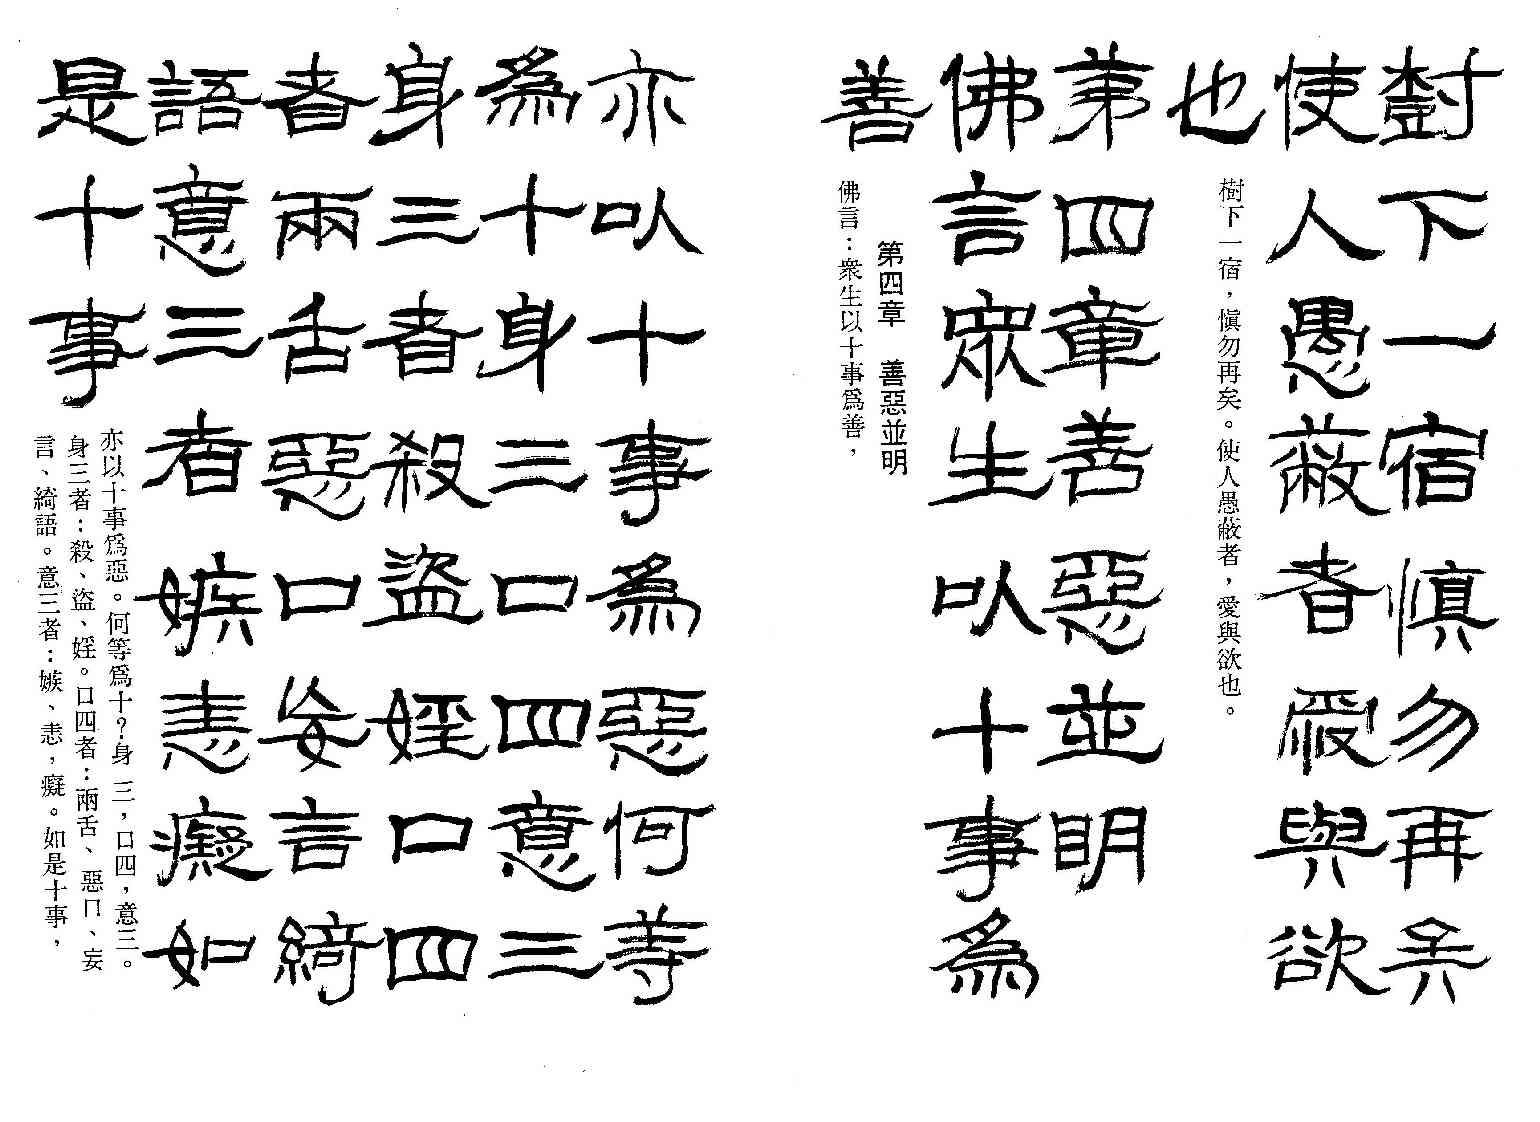 尌下一宿慎勿再矣
使人愚蔽者愛與欲
也
樹下一宿，慎勿再矣。使人愚蔽者，愛與欲也。
第四章善惡並明
佛言眾生以十事為
善
第四章　善惡並明
佛言：衆生以十事爲善，
亦以十事為惡何等
為十身三口四意三
身三者殺盜婬口四
者兩舌惡口妄言綺
語意三者嫉恚癡如
是十事
亦以十事爲惡。何等爲十？身三，口四，意三。
身三者：殺、盜、婬。口四者：兩舌、惡口、妄
言、綺語。意三者：嫉、恚，癡。如是十事，